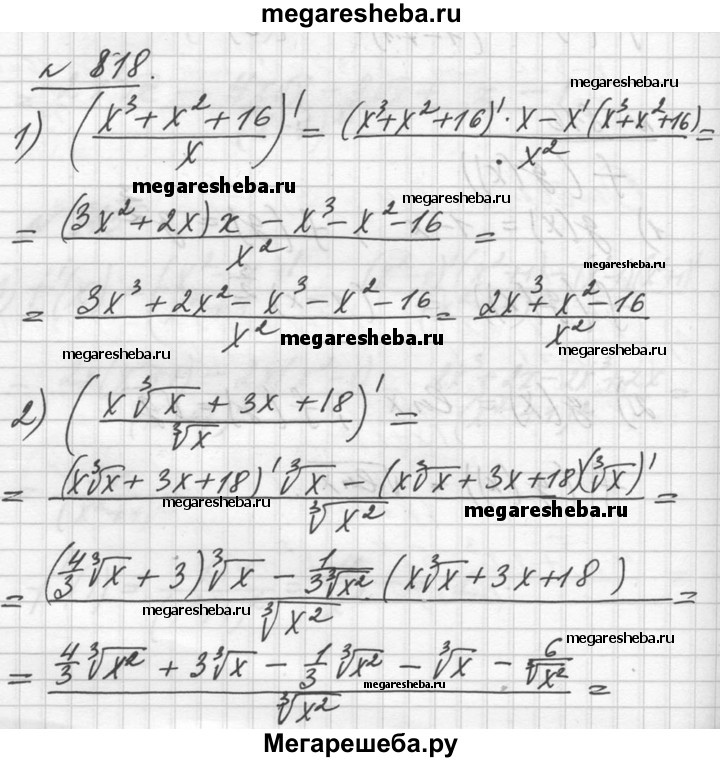 megaresheba.ru
№ 818.
megaresheba.ru
1) ((x³ + x² + 16)/x)' = ((x³ + x² + 16)' · x − x'(x³ + x² + 16))/x² =
megaresheba.ru
megaresheba.ru
= ((3x² + 2x) x − x³ − x² − 16)/x² =
megaresheba.ru
= (3x³ + 2x² − x³ − x² − 16)/x² = (2x³ + x² − 16)/x²
megaresheba.ru
megaresheba.ru
megaresheba.ru
2) ((x∛x + 3x + 18)/∛x)' =
= ((x∛x + 3x + 18)' ∛x − (x∛x + 3x + 18)(∛x)')/∛x² =
megaresheba.ru
megaresheba.ru
= ((4/3 ∛x + 3) ∛x − 1/(3∛x²) (x∛x + 3x + 18))/∛x² =
megaresheba.ru
megaresheba.ru
= (4/3 ∛x² + 3∛x − 1/3 ∛x² − ∛x − 6/∛x²)/∛x² =
megaresheba.ru
Мегарешеба.ру